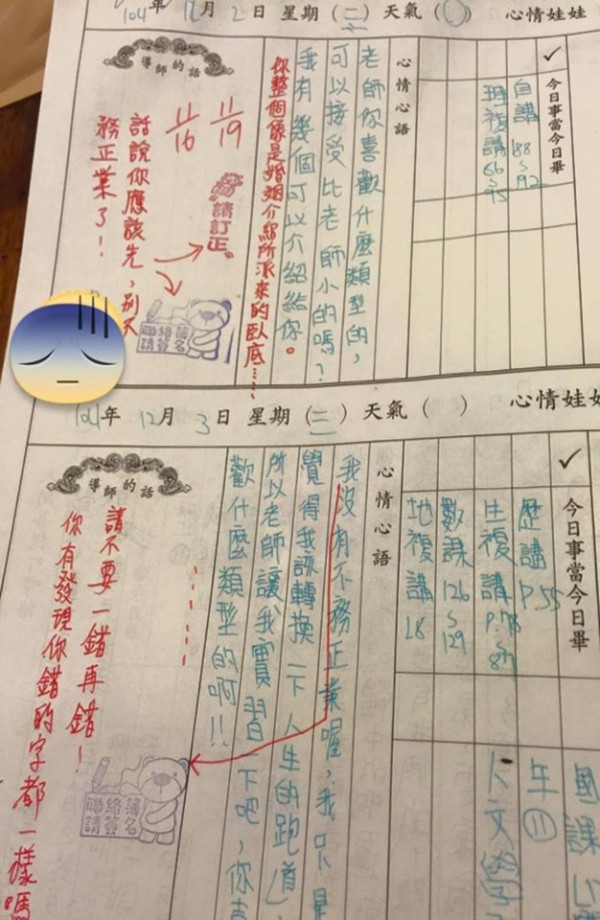 104年12月2日 星期(二) 天氣( ) 心情娃娃
✓ 今日事當今日畢
自講 188~92
理複講 66~75
心情心語
老師你喜歡什麼類型的,
可以接受比老師小的嗎?
我有幾個可以介紹給你。
你整個像是婚姻介紹所派來的臥底……
導師的話
11/19
11/16
請訂正
話說你應該先,別不
務正業了!
聯絡簿
請簽名
年12月3日 星期(三) 天氣( ) 心情娃娃
✓ 今日事當今日畢
歷講 P.55
生複講 P.78~84
數課 126~129
地複講 18
心情心語
我沒有不務正業喔,我只是
覺得我該轉換一下人生的跑道,
所以老師讓我實習一下吧,你喜
歡什麼類型的啊!!
導師的話
請不要一錯再錯!
你有發現你錯的字都一樣嗎
聯絡簿
請簽名
國課
年⑪